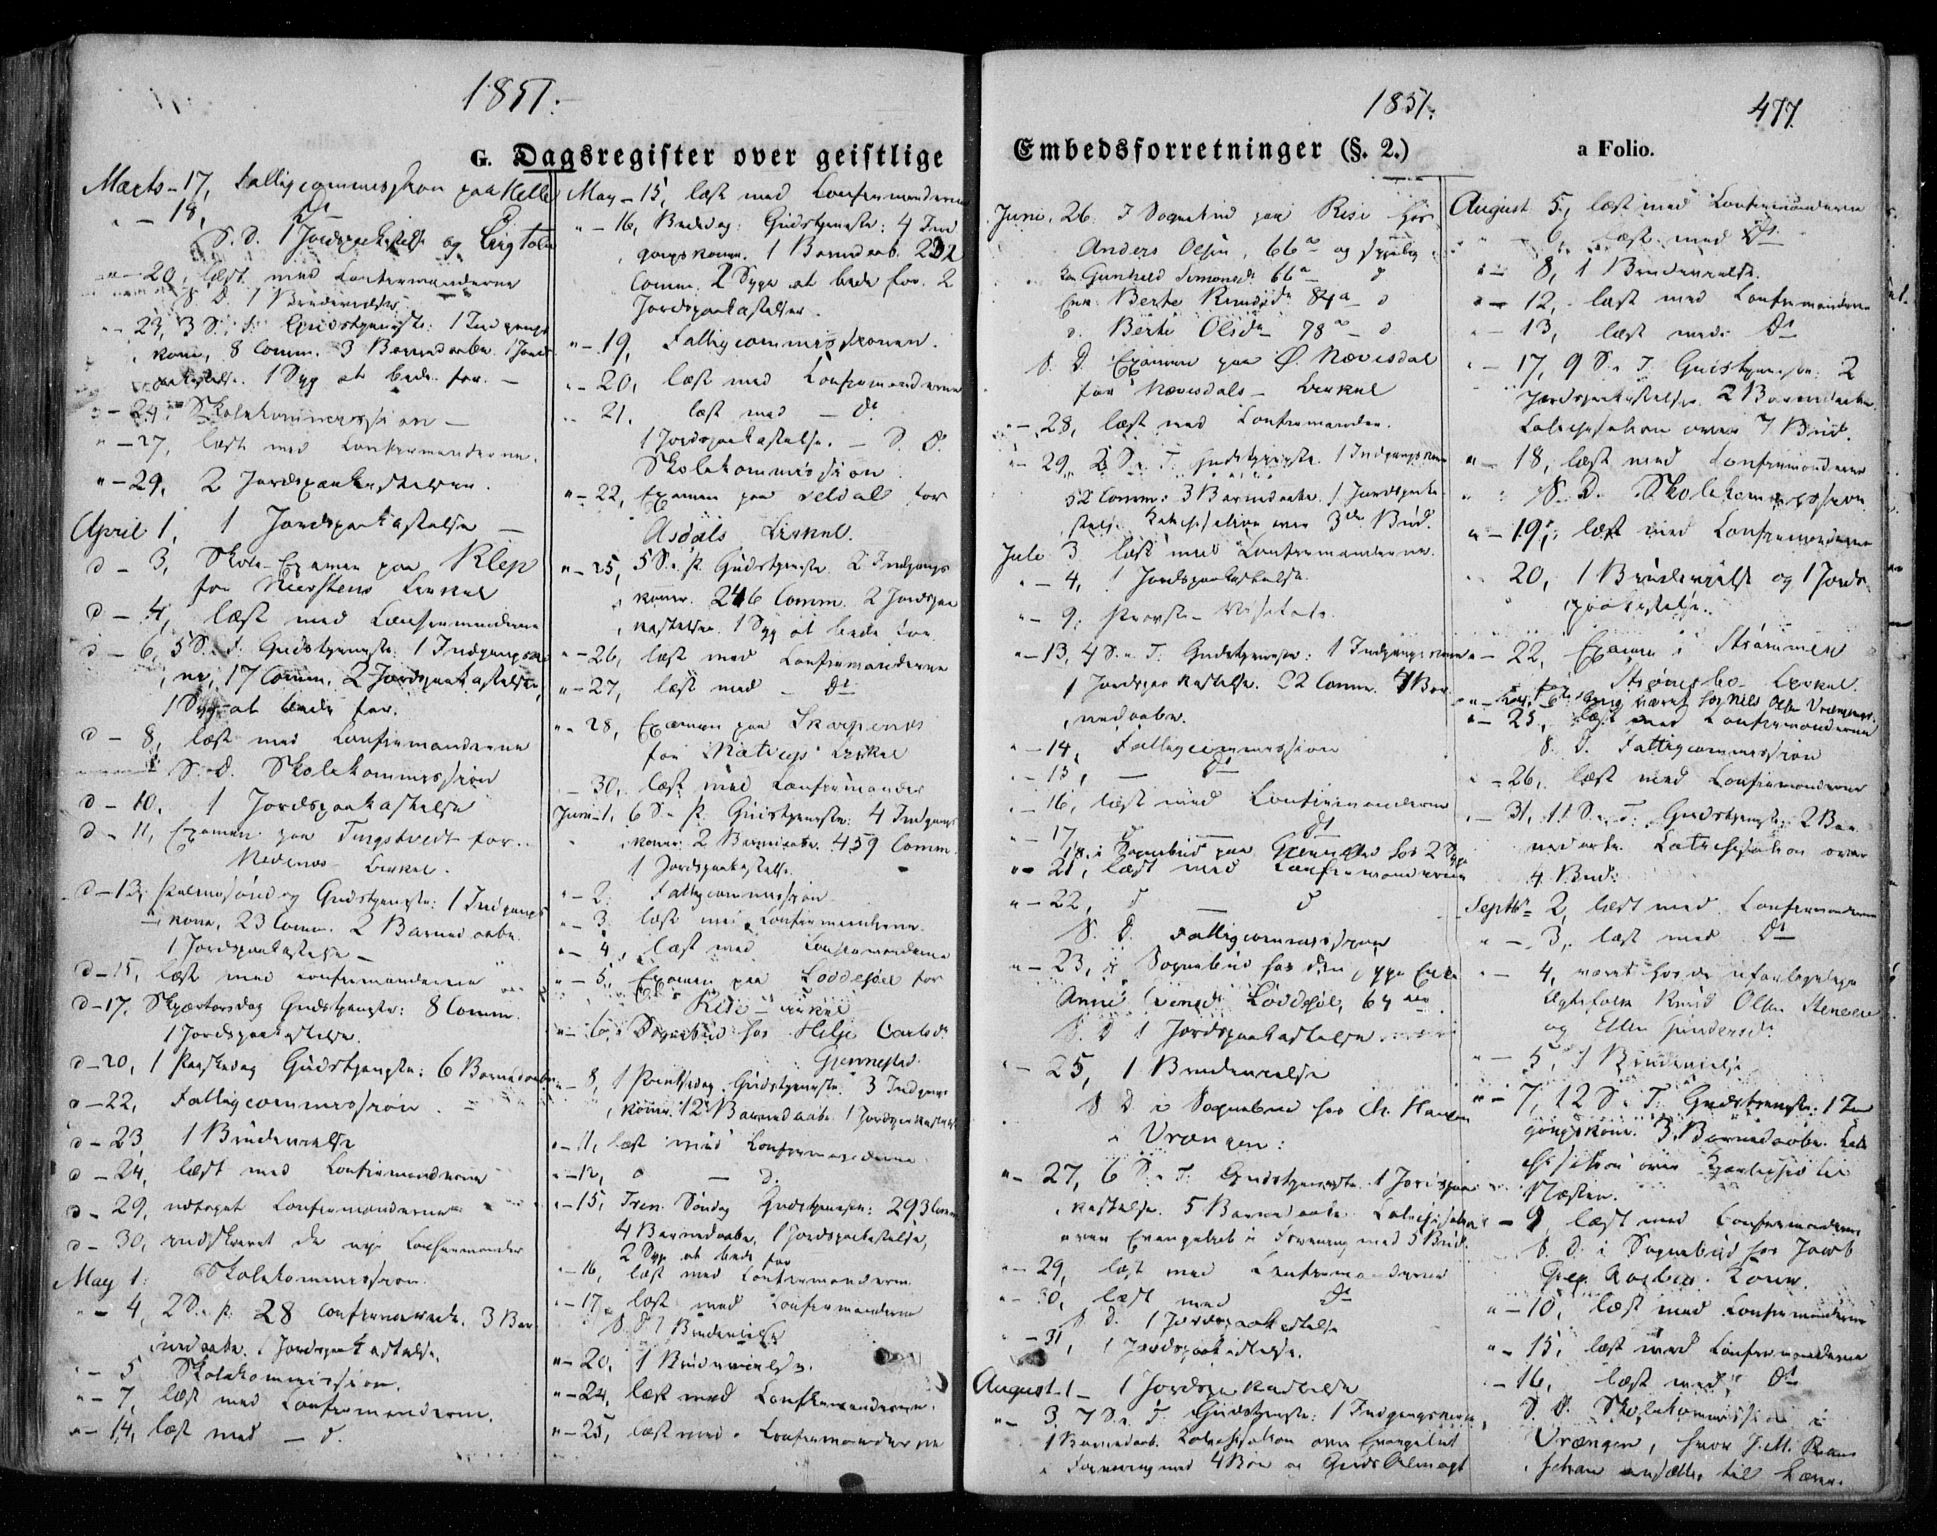 1851.
G. Dagsregister over geistlige
Marts - 17, Fattigcommission paa Helle
" - 18, Dt
S. D. 1 Jordpaakastelse og
" - 20, læst med Confirmanderne
S. D. 1 Brudevielse
" - 23, 3 S. i F. Gudstjeneste: 1 Indgangs
kone, 8 Comm. 3 Barnedaabe. 1 Jord
paakastelse. 1 Syg at bede for. -
" - 24, Skolekommission -
" - 27, læst med Confirmanderne.
" - 29, 2 Jordpaakastelser.
April 1, 1 Jordpaakastelse -
d - 3, Skole-Examen paa Klep
for Kierstens Cirkel
d - 4, læst med Confirmanderne
d - 6, 5 S. i F. Gudstjeneste: 1 Indgangsko
ne, 17 Comm. 2 Jordpaakastelse,
1 Syg at bede for.
d - 8, læst med Confirmanderne
S. D. Skolekommission
d - 10, 1 Jordpaakastelse
d - 11, Examen paa Tingstvedt for
Nedenes Cirkel.
d - 13, Palmesøndag Gudstjeneste: 1 Indgangs
kone, 23 Comm. 2 Barnedaabe.
1 Jordpaakastelse -
d - 15, læst med Confirmanderne
d - 17, Skjærtorsdag Gudstjeneste: 8 Comm.
1 Jordpaakastelse.
d - 20, 1 Paaskedag Gudstjeneste: 6 Barnedaabe
d - 22, Fattigcommission.
d - 23, 1 Brudevielse
d - 24, læst med Confirmanderne
d - 29, udtaget Confirmanderne
d - 30, indskrevet de nye Confirmander
May 1: Skolekommission.
" - 4, 2 S. e. P. 28 Confirmerede. 3 Bar
nedaabe. 1 Jordpaakastelse.
" - 5 Skolekommission.
" - 7, læst med Confirmanderne.
" - 14, læst med - d.
May - 15, læst med Confirmanderne
" - 16, Bededag: Gudstjeneste: 4 Ind
gangskoner. 1 Barnedaab. 232
Comm. 2 Syge at bede for. 2
Jordpaakastelser.
" - 19, Fattigcommissionen.
" - 20, læst med Confirmanderne
" 21, læst med - Dt
1 Jordpaakastelse. - S. D.
Skolekommission
" - 22, Examen paa Seldal for
Asdals Cirkel.
" - 25, 5 S. e. P. Gudstjeneste 2 Indgangs
koner. 246 Comm. 2 Jordpaa
kastelser. 1 Syg at bede for
" - 26, læst med Confirmanderne
" - 27, læst med - Dt
" - 28, Examen paa Skarpenes
for Natvigs Cirkel
- 30, læst med Confirmander
Juni - 1, 6 S. e. P. Gudstjeneste: 4 Indgangs
koner. 2 Barnedaabe. 459 Comm.
1 Jordpaakastelse.
" - 2: Fattigcommission
" - 3, læst med Confirmanderne.
" - 4, læst med Confirmanderne
" - 5, Examen paa Løddesøl for
Rise - Cirkel
" - 6, i Sognebud hos Helje Carlsdr
Gjennestad.
" - 8, 1 Pintsedag Gudstjeneste: 3 Indgangs
koner. 12 Barnedaabe. 1 Jordpaakastelse
" - 11, læst med Confirmanderne
" - 12, d - d.
" - 15, Tren. Søndag Gudstjeneste: 293 Comm
4 Barnedaabe, 1 Jordpaakastelse,
2 Syge at bede for
" - 16, læst med Confirmanderne
" - 17, læst med Confirmanderne
S. D. 1 Brudevielse
" - 20, 1 Brudevielse.
" - 24, læst med Confirmanderne.
" - 25, læst med Confirmanderne
1851.
477.
Embedsforretninger (§. 2.) a Folio.
Juni, 26: I Sognebud paa Rise hos
Anders Olsen, 66 a og sygelig
Gunhild Simonsdt 66 a - d
Enke Berte Knudsdt 84 a - d
d. Berte Olsdt 78 a - d
S. D. Examen paa Ø. Nævesdal
for Nævesdals - Cirkel
" - 28, læst med Confirmander.
" - 29, 2 S. e. T. Gudstjeneste. 1 Indgangskone
52 Comm: 3 Barnedaabe. 1 Jordpaaka
stelse. Catechisation over 3de Bud.
Juli 3 læst med Confirmanderne.
" - 4, 1 Jordpaakastelse.
" - 9, Provste - Visitats.
" - 13, 4 S. e. T. Gudstjeneste: 1 Indgangskone
1 Jordpaakastelse. 22 Comm. 4 Bar
nedaabe.
" - 14, Fattigcommission
" - 15, - Dt
" - 16, læst med Confirmanderne
" - 17 - dt
18, i Sognebud paa hos 2 Syge
" - 21, læst med Confirmanderne
" - 22, d - d
S. D. Fattigcommission
" - 23, i Sognebud hos den syge Enke
Anne Løddesøl, 64 aar
S. D. 1 Jordpaakastelse
" - 25, 1 Brudevielse
S. D. i Sognebud hos Ch. Hansen
Vrængen:
" - 27, 6 S. e. T. Gudstjeneste. 1 Jordpaa
kastelse. 5 Barnedaabe. Catechisation
over Evangeliet i Forening med 5 Bud.
" - 29, læst med Confirmanderne
" - 30, læst med Dt
S. D. 1 Jordpaakastelse
" - 31, 1 Jordpaakastelse.
August - 1 - 1 Jordpaakastelse
" - 3, 7 S. e. T. Gudstjeneste: 1 Indgangskone.
1 Barnedaab. Catechisation over Evangeliet
i Forening med 4 Bøn og Guds Almagt
August 5, læst med Confirmanderne
" 6, læst med Dt
" - 8, 1 Brudevielse.
" - 12, læst med Confirmanderne
" - 13, læst med Dt
" - 17, 9 S. e. T. Gudstjeneste: 2
Jordpaakastelse. 2 Barnedaabe.
Catechisation over 7 Bud.
" - 18, læst med Confirmanderne
S. D. Skolekommission
" - 19, læst med Confirmanderne
20, 1 Brudevielse og 1 Jord-
paakastelse.
" - 22, Examen i Strømmen
Strømsbo - Cirkel.
været hos Nils Olsen Vrængen
" - 25, læst med Confirmanderne
S. D. Fattigcommission
" - 26, læst med Confirmanderne
" - 31, 11 S. e. T. Gudstjeneste. 2 Bar
nedaabe. Catechisation over
4 Bud:
Septbr 2, læst med Confirmanderne
" - 3, læst med Dt
" - 4, været hos de
Ægtefolk Knud Olsen
og Ellen Gundersdt
" - 5, 1 Brudevielse
" - 7, 12 S. e. T. Gudstjeneste: 1 Ind
gangskone. 3 Barnedaabe. Cate
chisation over Kjærlighed til
Næsten.
- 9, læst med Confirmanderne
S. D. i Sognebud hos Jacob
Kone.
" - 10, læst med Confirmanderne
" - 15, læst med Confirmanderne
" - 16, læst med Dt
S. D. Skolekommission i
Vrængen, hvor
ansættes til Lærer.